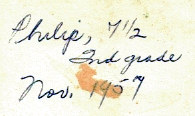 Philip, 7 1/2
2nd grade
Nov. 1957